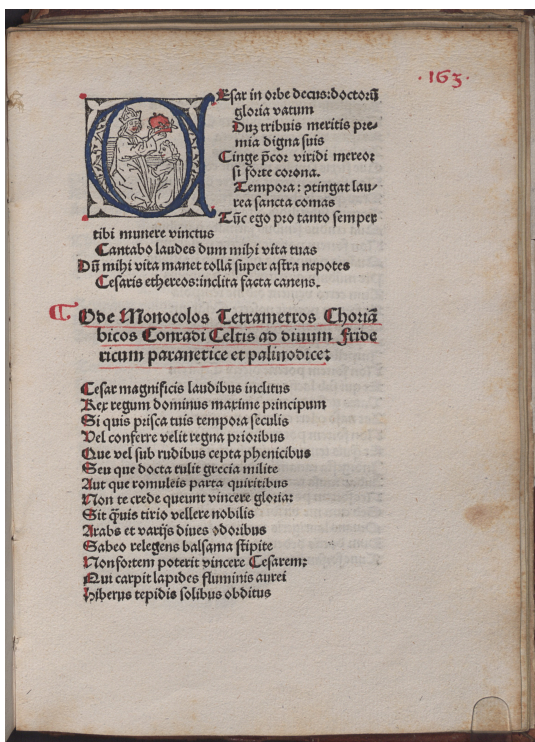 ·163·
CEsar in orbe decus: doctorũ
gloria vatum
Duʒ tribuis meritis pre-
mia digna suis
Cinge p̃cor viridi mereor
si forte corona.
Tempora: ꝯtingat lau-
rea sancta comas
Tũc ego pro tanto semper
tibi munere vinctus
Cantabo laudes dum mihi vita tuas
Dũ mihi vita manet tollã super astra nepotes
Cesaris ethereos: inclita facta canens.
¶ Ode Monocolos Tetrametros Choriã
bicos Conradi Celtis ad diuum Fride
ricum paranetice et palinodice:
Cesar magnificis laudibus inclitus
Rex regum dominus maxime principum
Si quis prisca tuis tempora seculis
Vel conferre velit regna prioribus
Que vel sub rudibus cepta phenicibus
Seu que docta tulit grecia milite
Aut que romuleis parta quiritibus
Non te crede queunt vincere gloria:
Sit q̃uis tirio vellere nobilis
Arabs et varijs diues odoribus
Sabeo relegens balsama stipite
Non fortem poterit vincere Cesarem:
Qui carpit lapides fluminis aurei
Hiberus tepidis solibus obditus